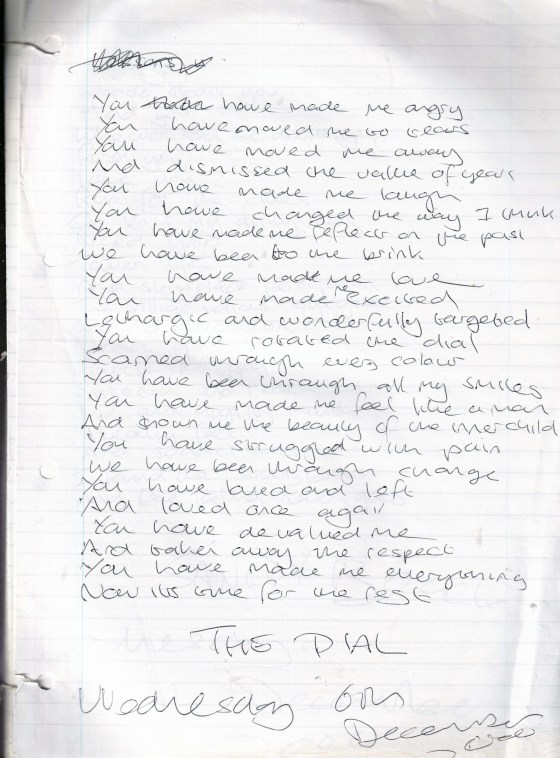 You have made me angry
You have moved me to tears
You have moved me away
And dismissed the value of years
You have made me laugh
You have changed the way I think
You have made me reflect on the past
We have been to the brink
You have made me love
You have made me excited
Lethargic and wonderfully targeted
You have rotated the dial
Scanned through every colour
You have been through all my smiles
You have made me feel like a man
And shown me the beauty of the inner child
You have struggled with pain
We have been through change
You have loved and left
And loved once again
You have devalued me
And taken away the respect
You have made me everything
Now its time for the rest
THE DIAL
Wednesday 6th
December